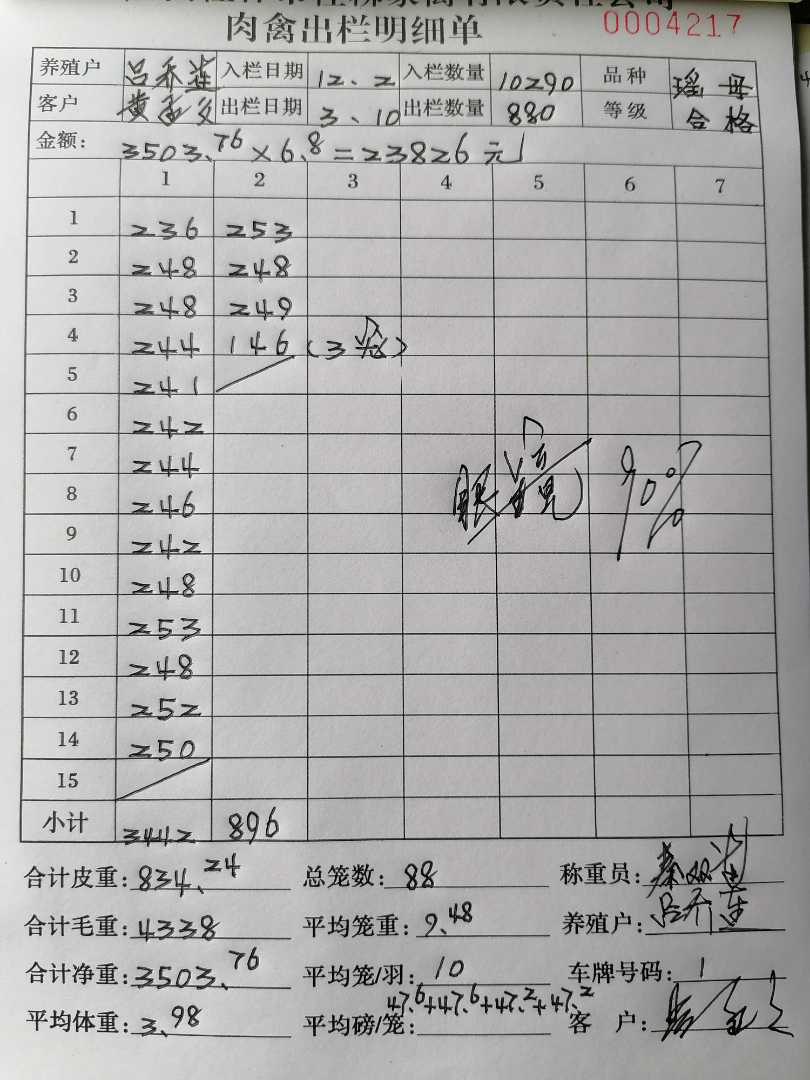 肉禽出栏明细单 0004217
养殖户 吕乔莲 入栏日期 12、2 入栏数量 10290 品种 瑶母
客户 出栏日期 3、10 出栏数量 880 等级 合格
金额: 3503.76×6.8=23826元
1 2 3 4 5 6 7
1 236 253
2 248 248
3 248 249
4 244 146 (3笼)
5 241
6 242
7 244
8 246
9 242
10 248
11 253
12 248
13 252
14 250
15
眼镜 90%
小计 3442 896
合计皮重: 834.24 总笼数: 88 称重员:
合计毛重: 4338 平均笼重: 9.48 养殖户: 吕乔莲
合计净重: 3503.76 平均笼/羽: 10 车牌号码: 1
平均体重: 3.98 平均磅/笼: 47.6+47.6+47.2+47.2 客户: